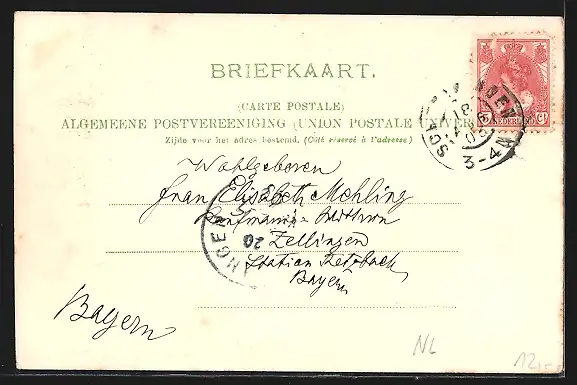 BRIEFKAART.
(CARTE POSTALE)
ALGEMEENE POSTVEREENIGING (UNION POSTALE UNIVERS
Zijde voor het adres bestemd. (Côté réservé à l'adresse)
NEDERLAND
3-4
Wohlgeboren
Frau Elisabeth Mehling
Kaufmanns-
Zellingen
Station Retzbach
Bayern
Bayern
NGEN
20
NL
12,-